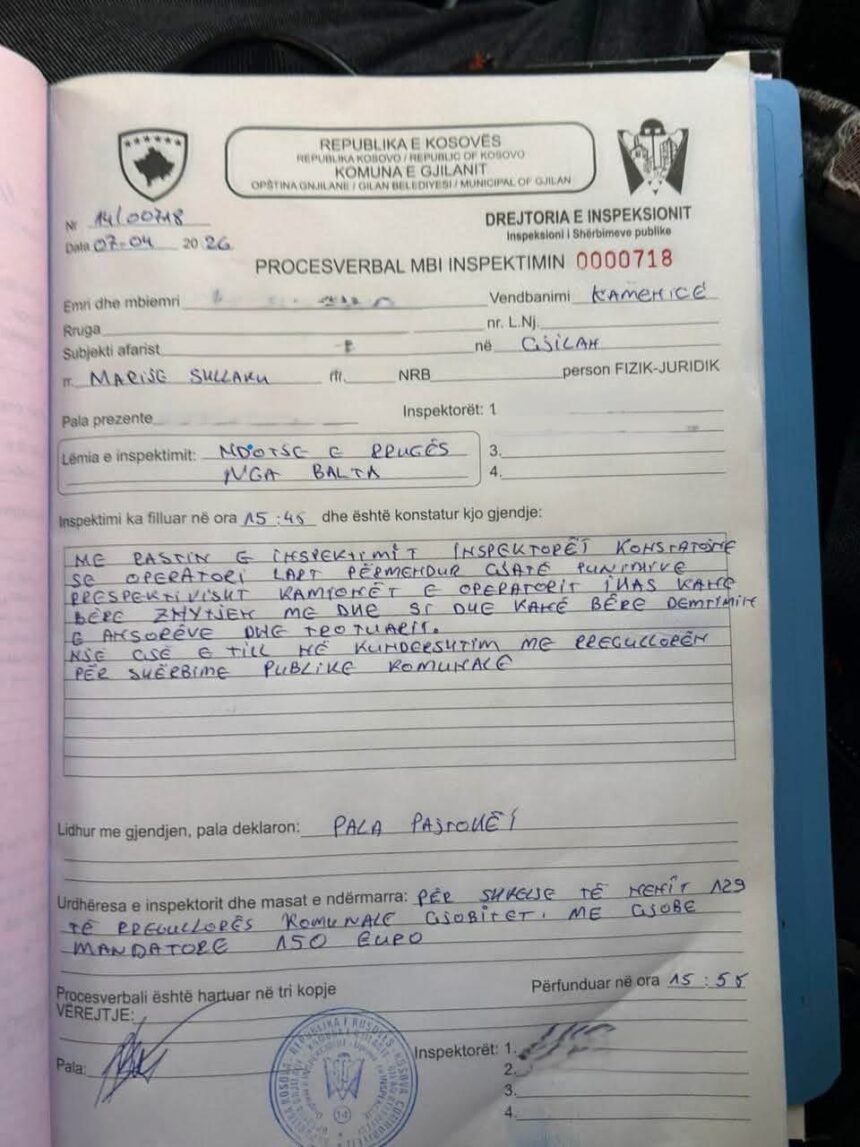 REPUBLIKA E KOSOVËS
REPUBLIKA KOSOVO / REPUBLIC OF KOSOVO
KOMUNA E GJILANIT
OPŠTINA GNJILANE / GILAN BELEDIYESI / MUNICIPAL OF GJILAN
Nr 14/00718
Data 07-04 2026
DREJTORIA E INSPEKSIONIT
Inspeksioni i Shërbimeve publike
PROCESVERBAL MBI INSPEKTIMIN 0000718
Emri dhe mbiemri Vendbanimi KAMENICË
Rruga nr. L.Nj.
Subjekti afarist në GJILAN
rr. MARIJE SHLLAKU nr. NRB person FIZIK-JURIDIK
Pala prezente Inspektorët: 1
Lëmia e inspektimit: NDOTJE E RRUGËS 3.
NGA BALTA 4.
Inspektimi ka filluar në ora 15:45 dhe është konstatur kjo gjendje:
ME RASTIN E INSPEKTIMIT INSPEKTORËT KONSTATOJNË
SE OPERATORI LART PËRMENDUR GJATË PUNIMEVE
PRESPEKTIVISHT KAMIONËT E OPERATORIT KANË
BËRË ME DHE SI DHE KANË BËRË DEMTIMIN
E ANSORËVE DHE TROTUARIT.
NJË GJË E TILL NË KUNDERSHTIM ME RREGULLOREN
PËR SHËRBIME PUBLIKE KOMUNALE
Lidhur me gjendjen, pala deklaron: PALA PAJTOHËT
Urdhëresa e inspektorit dhe masat e ndërmarra: PËR SHKELJE TË NENIT 129
TË RREGULLORËS KOMUNALE GJOBITET. ME GJOBË
MANDATORE 150 EURO
Procesverbali është hartuar në tri kopje Përfunduar në ora 15:55
VËREJTJE:
Pala: Inspektorët: 1.
2.
3.
4.